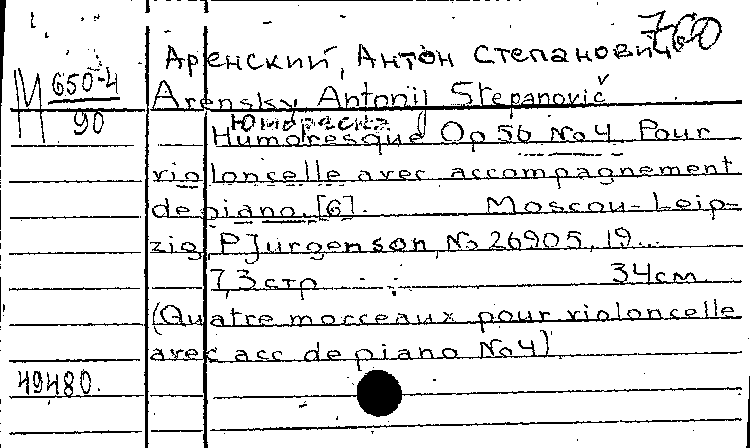 760
Аренский, Антон Степанович
М 650-4
90
Arensky Antonij Stepanovič
Юмореска
Humoresque Op 56 No 4 Pour
violoncelle avec accompagnement
de piano. [6]. Moscou-Leip-
zig, P Jurgenson, No 26905, 19...
7,3 стр 34см
(Quatre morceaux pour violoncelle
avec acc de piano No 4)
49480.